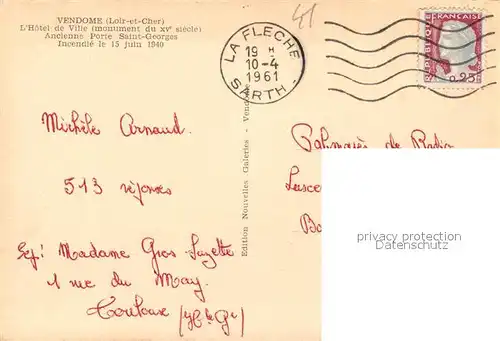 VENDOME (Loir-et-Cher)
L'Hôtel de Ville (monument du XVe siècle)
Ancienne Porte Saint-Georges
Incendié le 15 juin 1940
41
LA FLECHE
19 H
10-4
1961
SARTH.
REPUBLIQUE FRANÇAISE
0,25
Michèle Arnaud
513 réponses
Exp: Madame Gros Suzette
1 rue du May
Toulouse (Hte Gne)
Edition Nouvelles Galeries - Vendôme
Palmarès de Radio
privacy protection
Datenschutz